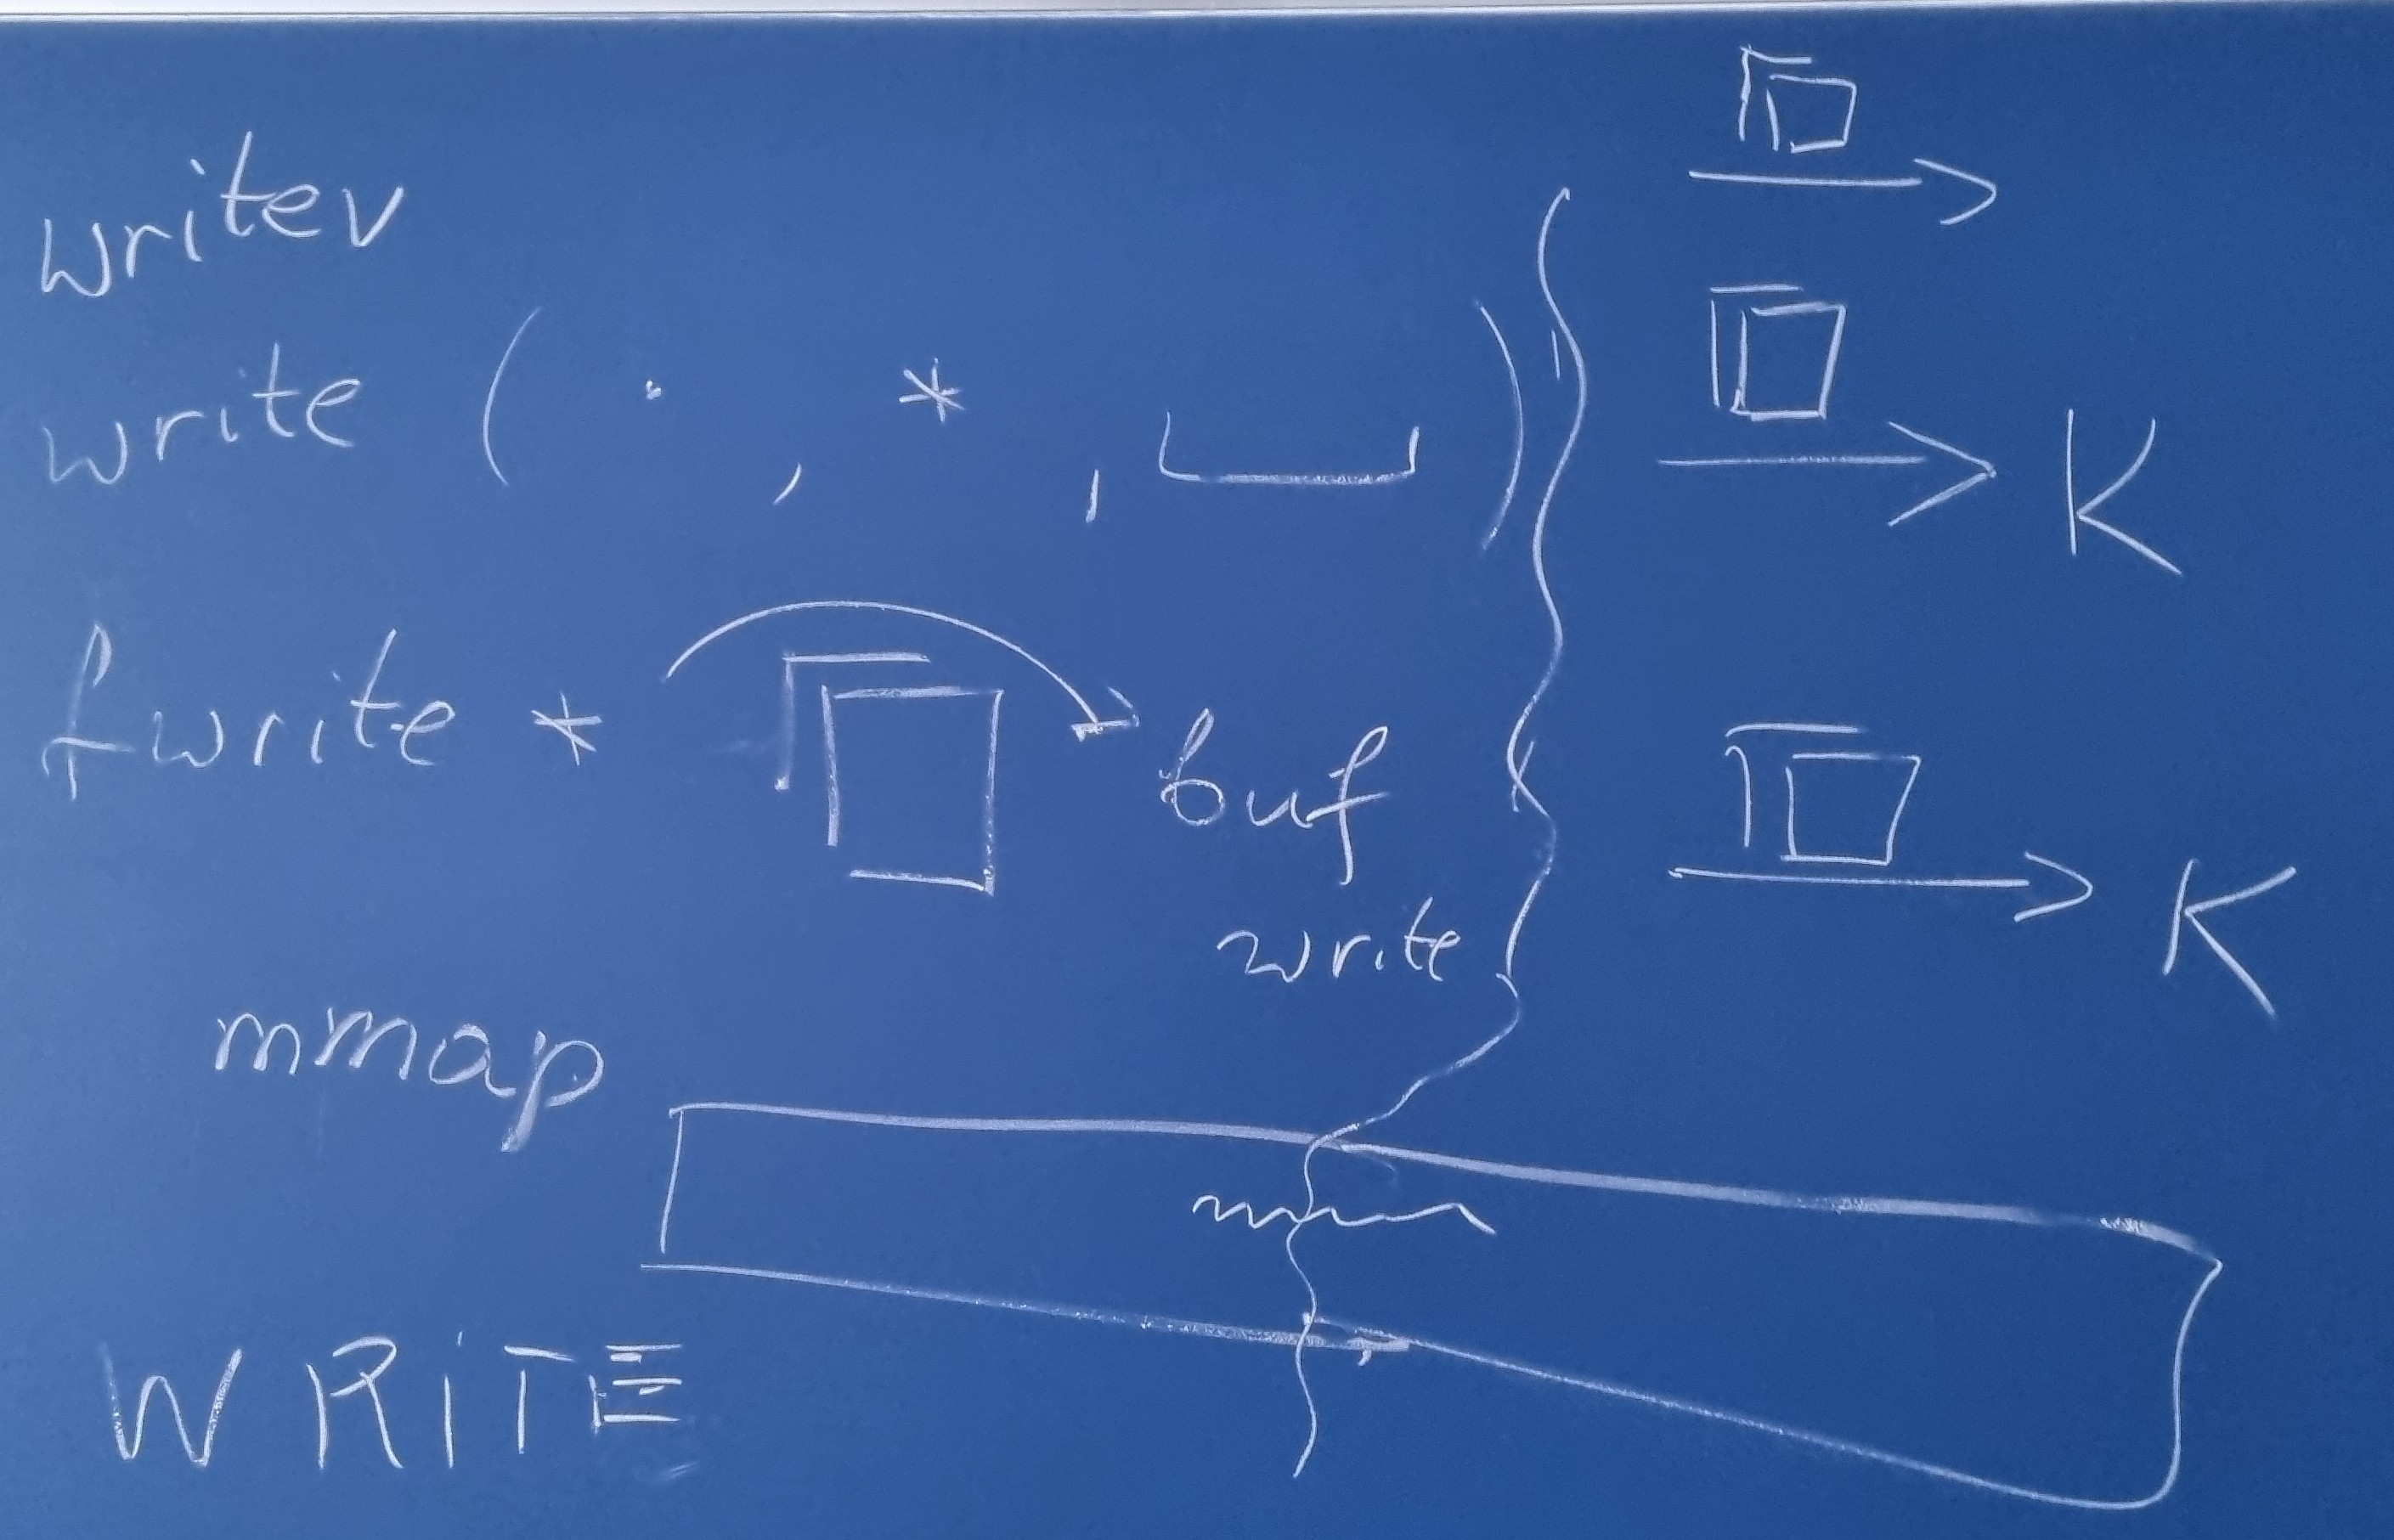 writev
write ( · , * , ) K
fwrite * buf K
write
mmap
WRiTE